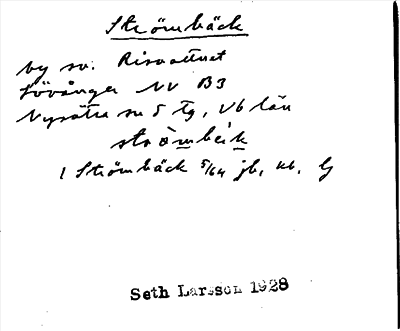 Strömbäck
by sv. Risvattnet
Lövånger NV B3
Nysätra sn 5 tg, Vb län
strömbäk
1 Strömbäck 5/64 jb, kb, lj
Seth Larsson 1928